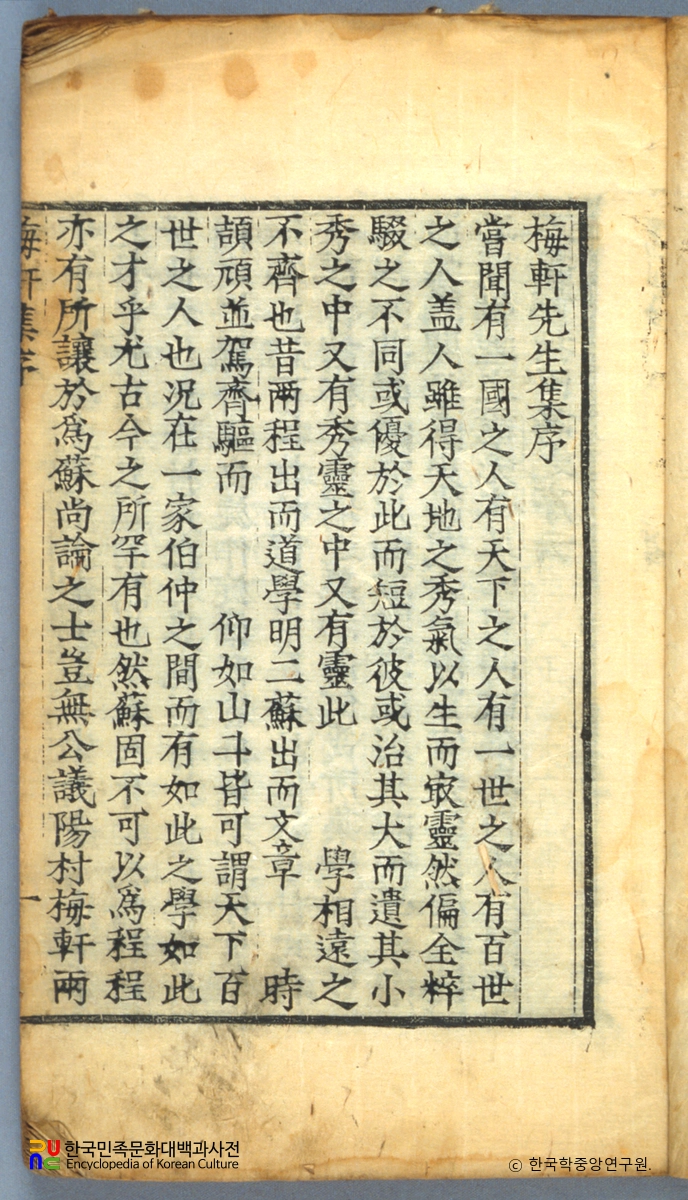 梅軒先生集序
嘗聞有一國之人有天下之人有一世之人有百世
之人盖人雖得天地之秀氣以生而㝡靈然偏全粹
駁之不同或優於此而短於彼或治其大而遺其小
秀之中又有秀靈之中又有靈此 學相遠之
不齊也昔兩程出而道學明二蘇出而文章 時
頡頏並駕齊驅而 仰如山斗皆可謂天下百
世之人也況在一家伯仲之間而有如此之學如此
之才乎尤古今之所罕有也然蘇固不可以爲程程
亦有所讓於爲蘇尚論之士豈無公議陽村梅軒兩
梅軒集序 一
한국민족문화대백과사전
Encyclopedia of Korean Culture
© 한국학중앙연구원.